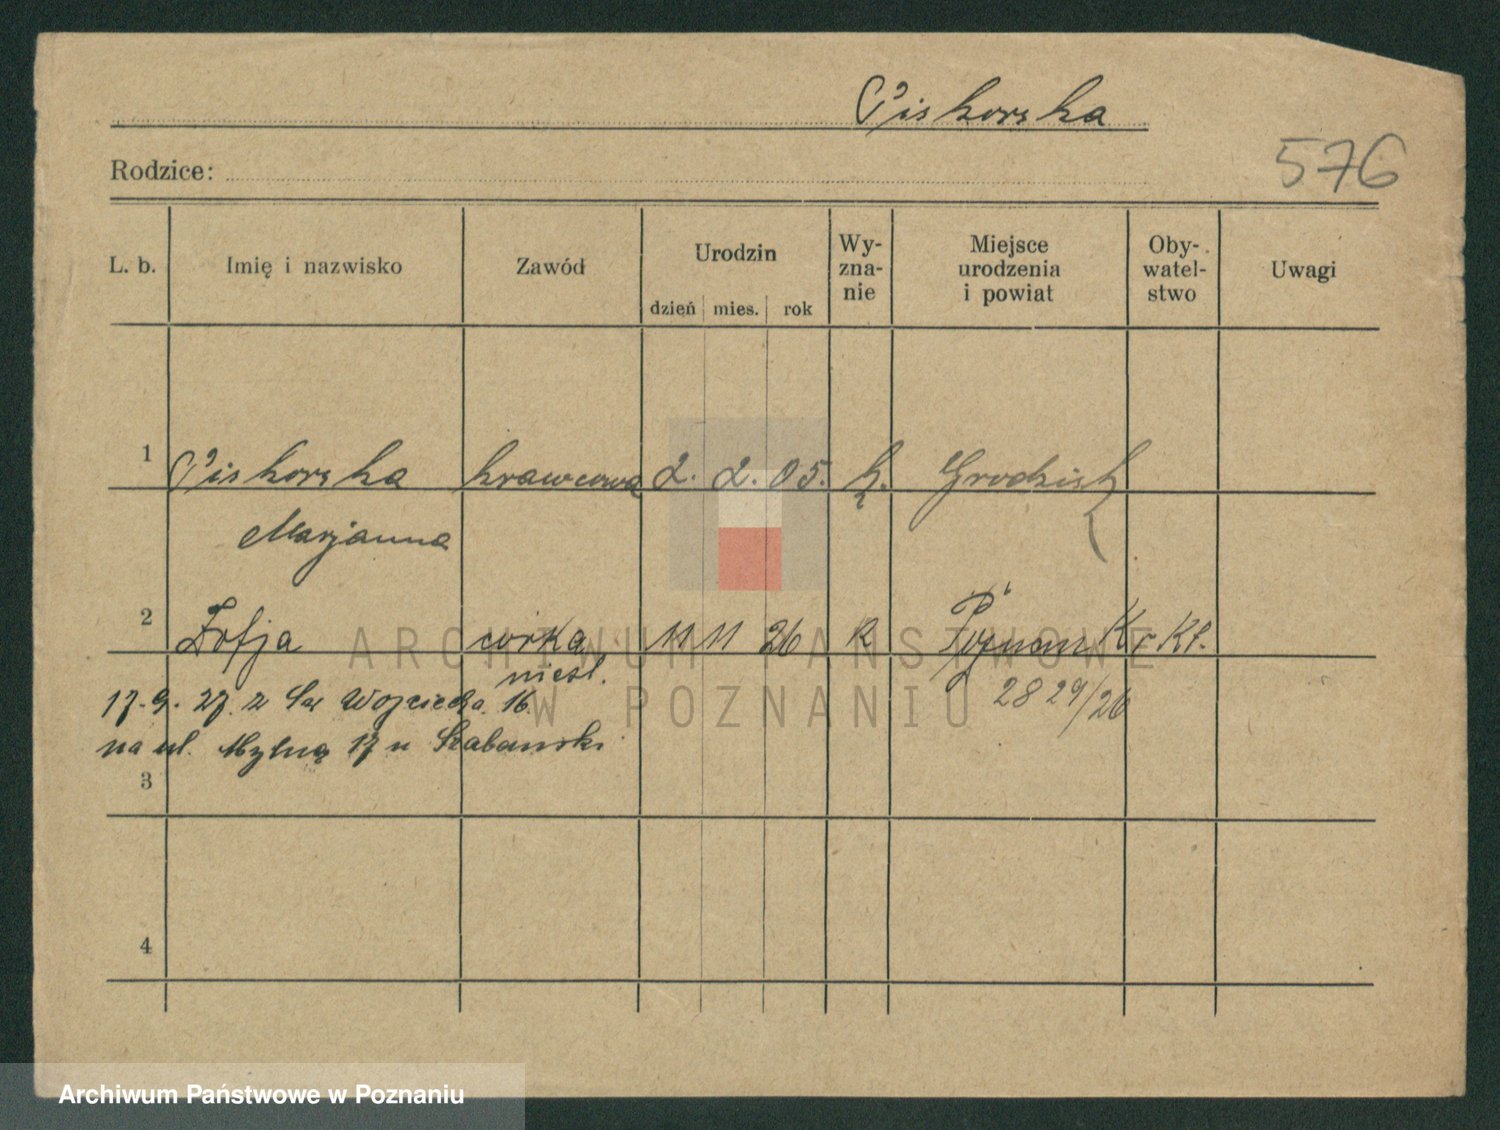 Piskorska
576
Rodzice:
L. b. Imię i nazwisko Zawód Urodzin dzień mies. rok Wy-zna-nie Miejsce urodzenia i powiat Oby-watel-stwo Uwagi
1 Piskorska krawcowa 2. 2. 05. k. Grodzisk
Marjanna
2 Zofja córka 11 11 26 k Poznań
nieśl. 2829/26
17. 9. 27. z Św Wojciecha 16.
na ul. Mylną 17 u Szabanski
3
4
ARCHIWUM PAŃSTWOWE
W POZNANIU
Archiwum Państwowe w Poznaniu